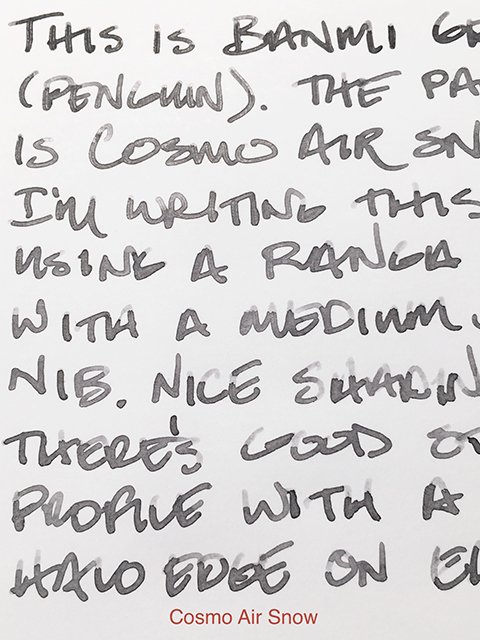 THIS IS BANMI GR
(PENGUIN). THE PA
IS COSMO AIR SN
I'M WRITING THIS
USING A RANGA
WITH A MEDIUM J
NIB. NICE SHADIN
THERE'S GOOD
PROFILE WITH A
HALO EDGE ON
Cosmo Air Snow